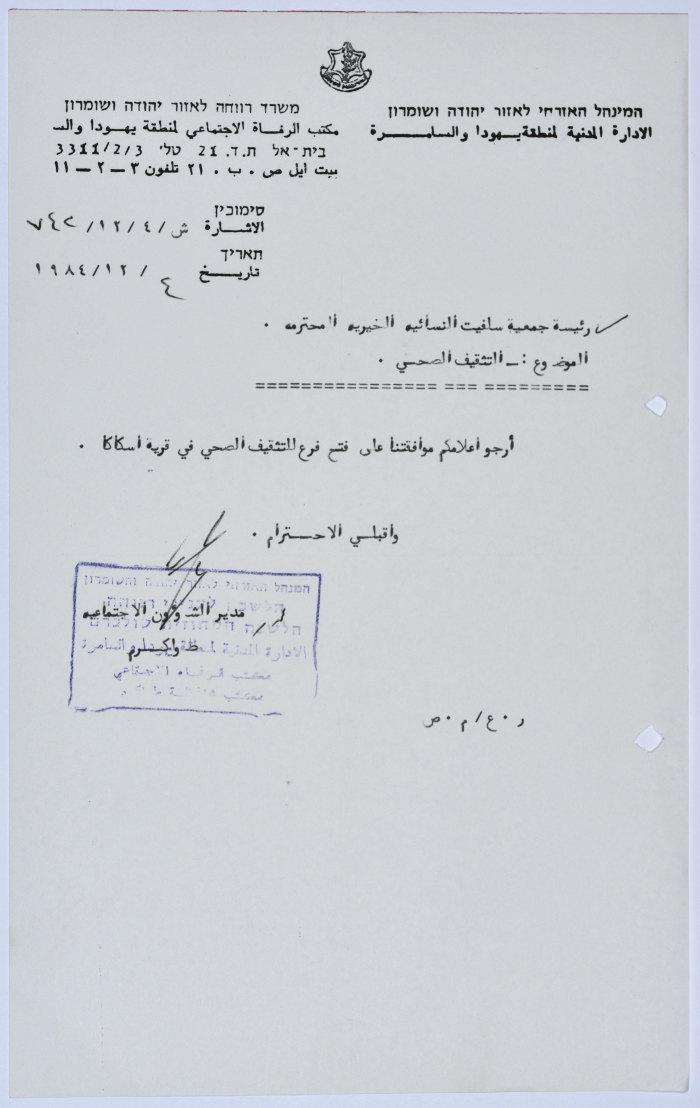 המינהל האזרחי לאזור יהודה ושומרון
الادارة المدنية لمنطقة يهودا والسامـــرة
משרד רווחה לאזור יהודה ושומרון
مكتب الرفاة الاجتماعي لمنطقة يهودا والس
בית-אל ת.ד. 21 טל׳ 3311/2/3
بيت ايل ص . ب . ٢١ تلفون ٣ — ٢ — ١١
סימוכין
الاشـــارة ش/٤/١٢/٧٤٢
תאריך
تاريـــخ ٤/١٢/١٩٨٤
رئيسة جمعية سلفيت النسائيه الخيريه المحترمه .
الموضوع :ــ التثقيف الصحــي .
====================== === =========
أرجو اعلامكم موافقتنا على فتح فرع للتثقيف الصحي في قرية اسكاكا .
واقبلــي الاحـــترام .
המנהל האזרחי לאזור יהודה והשומרון
مدير الشؤون الاجتماعيه
طولكـــرم
الادارة المدنية لمنطقة يهودا والسامرة
مكتب الاجتماعي
ر ٠ ع / م ٠ ص